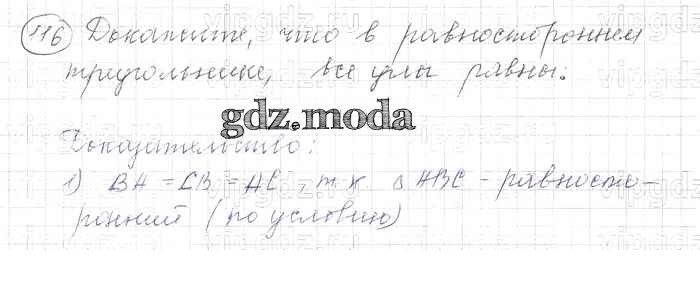 116 Докажите, что в равностороннем
треугольнике, все углы равны.
gdz.moda
Доказательство:
1) ВА = СВ = АС, т.к △ АВС - равносто-
ронний (по условию)